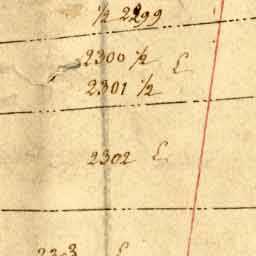 ½ 2299
2300 ½ E
2301 ½
2302 E
2303 E